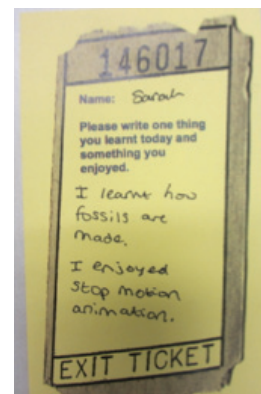 146017
Name: Sarah
Please write one thing
you learnt today and
something you
enjoyed.
I learnt how
fossils are
made.
I enjoyed
stop motion
animation.
EXIT TICKET